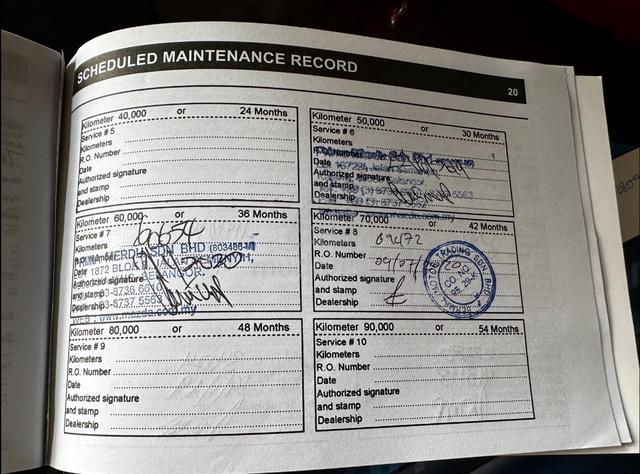 SCHEDULED MAINTENANCE RECORD
20
Kilometer 40,000 or 24 Months
Service # 5
Kilometers
R.O. Number
Date
Authorized signature
and stamp
Dealership
Kilometer 50,000 or 30 Months
Service # 6
Kilometers
R.O. Number
Date
Authorized signature
and stamp
Dealership
Kilometer 60,000 or 36 Months
Service # 7
Kilometers 60654
SDN BHD
Date
1872
Authorized signature
and stamp 03-8736
Dealership 03-8737 5563
WEB : www.mazda.com.my
Kilometer 70,000 or 42 Months
Service # 8
Kilometers 69472
R.O. Number
Date
Authorized signature
and stamp
Dealership
TRADING SDN. BHD.
CO. NO.
Kilometer 80,000 or 48 Months
Service # 9
Kilometers
R.O. Number
Date
Authorized signature
and stamp
Dealership
Kilometer 90,000 or 54 Months
Service # 10
Kilometers
R.O. Number
Date
Authorized signature
and stamp
Dealership